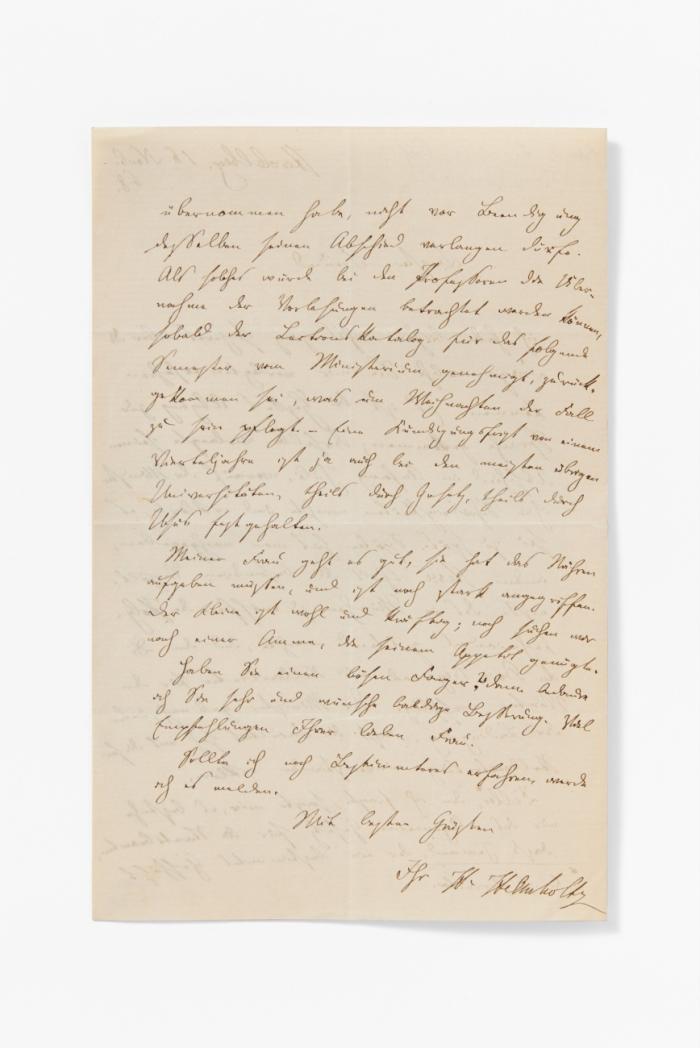 übernommen habe, nicht vor Beendigung
desselben seinen Abschied verlangen dürfe.
Als solches würde bei den Professoren die Über-
nahme der Vorlesungen betrachtet werden können,
sobald der Lectionskatalog für das folgende
Semester vom Ministerium genehmigt, zurück-
gekommen sei, was um Weihnachten der Fall
zu sein pflegt. – Eine Kündigungsfrist von einem
Vierteljahre ist ja auch bei den meisten übrigen
Universitäten, theils durch Gesetz, theils durch
Usus festgehalten.
Meiner Frau geht es gut, sie hat das Nähren
aufgeben müssen, und ist noch stark angegriffen.
Der Kleine ist wohl und kräftig; noch suchen wir
nach einer Amme, die seinem Appetit genügte.
Haben Sie einen bösen Finger? dann bedaure
ich Sie sehr und wünsche baldige Besserung. Viel
Empfehlungen Ihrer lieben Frau.
Sollte ich noch Bestimmteres erfahren, werde
ich es melden.
Mit besten Grüßen
Ihr H. Helmholtz